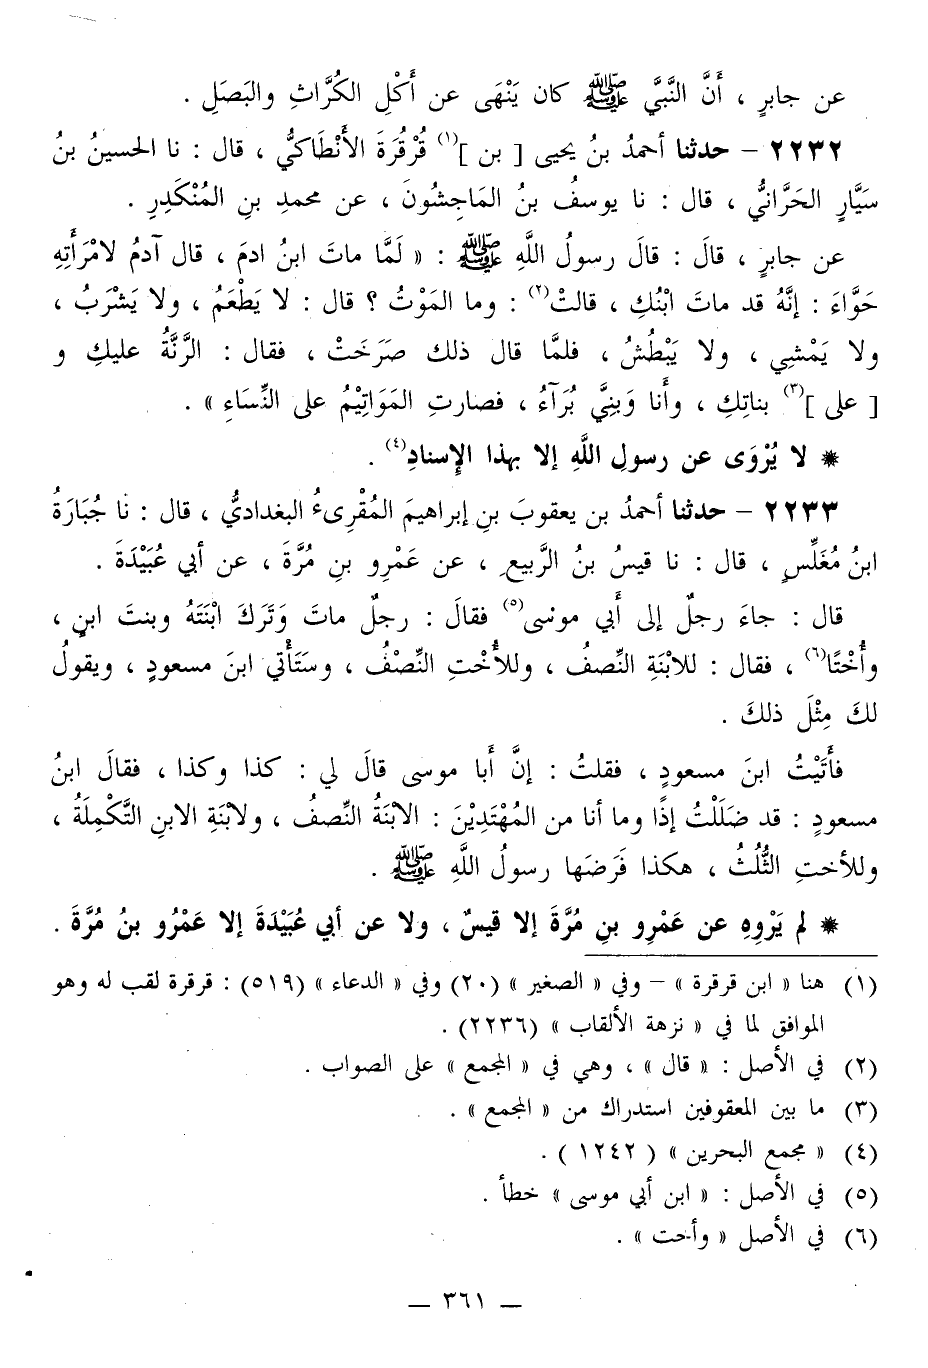 عن جابرٍ ، أَنَّ النَّبيَّ ﷺ كان يَنْهَى عن أَكْلِ الكُرَّاثِ والبَصَلِ .
٢٢٣٢ – حدثنا أحمدُ بنُ يحيى [ بن ](١) قُرْقُرَةَ الأَنْطَاكيُّ ، قال : نا الحسينُ بنُ
سَيَّارٍ الحَرَّانيُّ ، قال : نا يوسفُ بنُ المَاجِشُونَ ، عن محمدِ بنِ المُنْكَدِرِ .
عن جابرٍ ، قالَ : قالَ رسولُ اللَّهِ ﷺ : « لَمَّا ماتَ ابنُ ادمَ ، قال آدمُ لامْرَأَتِهِ
حَوَّاءَ : إنَّهُ قد ماتَ ابْنُكِ ، قالتْ(٢) : وما المَوْتُ ؟ قال : لا يَطْعَمُ ، ولا يَشْرَبُ ،
ولا يَمْشِي ، ولا يَبْطُشُ ، فلمَّا قال ذلك صَرَخَتْ ، فقال : الرَّنَّةُ عليكِ و
[ على ](٣) بناتِكِ ، وأَنا وَبَنِيَّ بُرَآءُ ، فصارتِ المَوَاتِيْمُ على النِّسَاءِ » .
* لا يُرْوَى عن رسولِ اللَّهِ إلا بهذا الإسنادِ(٤) .
٢٢٣٣ – حدثنا أحمدُ بن يعقوبَ بنِ إبراهيمَ المُقْرِىءُ البغداديُّ ، قال : نا جُبَارَةُ
ابنُ مُغَلِّسٍ ، قال : نا قيسُ بنُ الرَّبيعِ ، عن عَمْرِو بنِ مُرَّةَ ، عن أبي عُبَيْدَةَ .
قال : جاءَ رجلٌ إلى أَبي موسى(٥) فقالَ : رجلٌ ماتَ وَتَرَكَ ابْنَتَهُ وبنتَ ابنٍ ،
وأُخْتًا(٦) ، فقال : للابْنَةِ النِّصفُ ، وللأُخْتِ النِّصْفُ ، وسَتَأْتي ابنَ مسعودٍ ، ويقولُ
لكَ مِثْلَ ذلكَ .
فأَتَيْتُ ابنَ مسعودٍ ، فقلتُ : إنَّ أَبا موسى قالَ لي : كذا وكذا ، فقالَ ابنُ
مسعودٍ : قد ضَلَلْتُ إذًا وما أنا من المُهْتَدِيْنَ : الابْنَةُ النِّصفُ ، ولابْنَةِ الابنِ التَّكْمِلَةُ ،
وللأختِ الثُّلُثُ ، هكذا فَرَضَها رسولُ اللَّهِ ﷺ .
* لم يَرْوِهِ عن عَمْرِو بنِ مُرَّةَ إلا قيسٌ ، ولا عن أبي عُبَيْدَةَ إلا عَمْرُو بنُ مُرَّةَ .
(١) هنا « ابن قرقرة » – وفي « الصغير » (٢٠) وفي « الدعاء » (٥١٩) : قرقرة لقب له وهو
الموافق لما في « نزهة الألقاب » (٢٢٣٦) .
(٢) في الأصل : « قال » ، وهي في « المجمع » على الصواب .
(٣) ما بين المعقوفين استدراك من « المجمع » .
(٤) « مجمع البحرين » ( ١٢٤٢ ) .
(٥) في الأصل : « ابن أبي موسى » خطأ .
(٦) في الأصل « وأخت » .
— ٣٦١ —